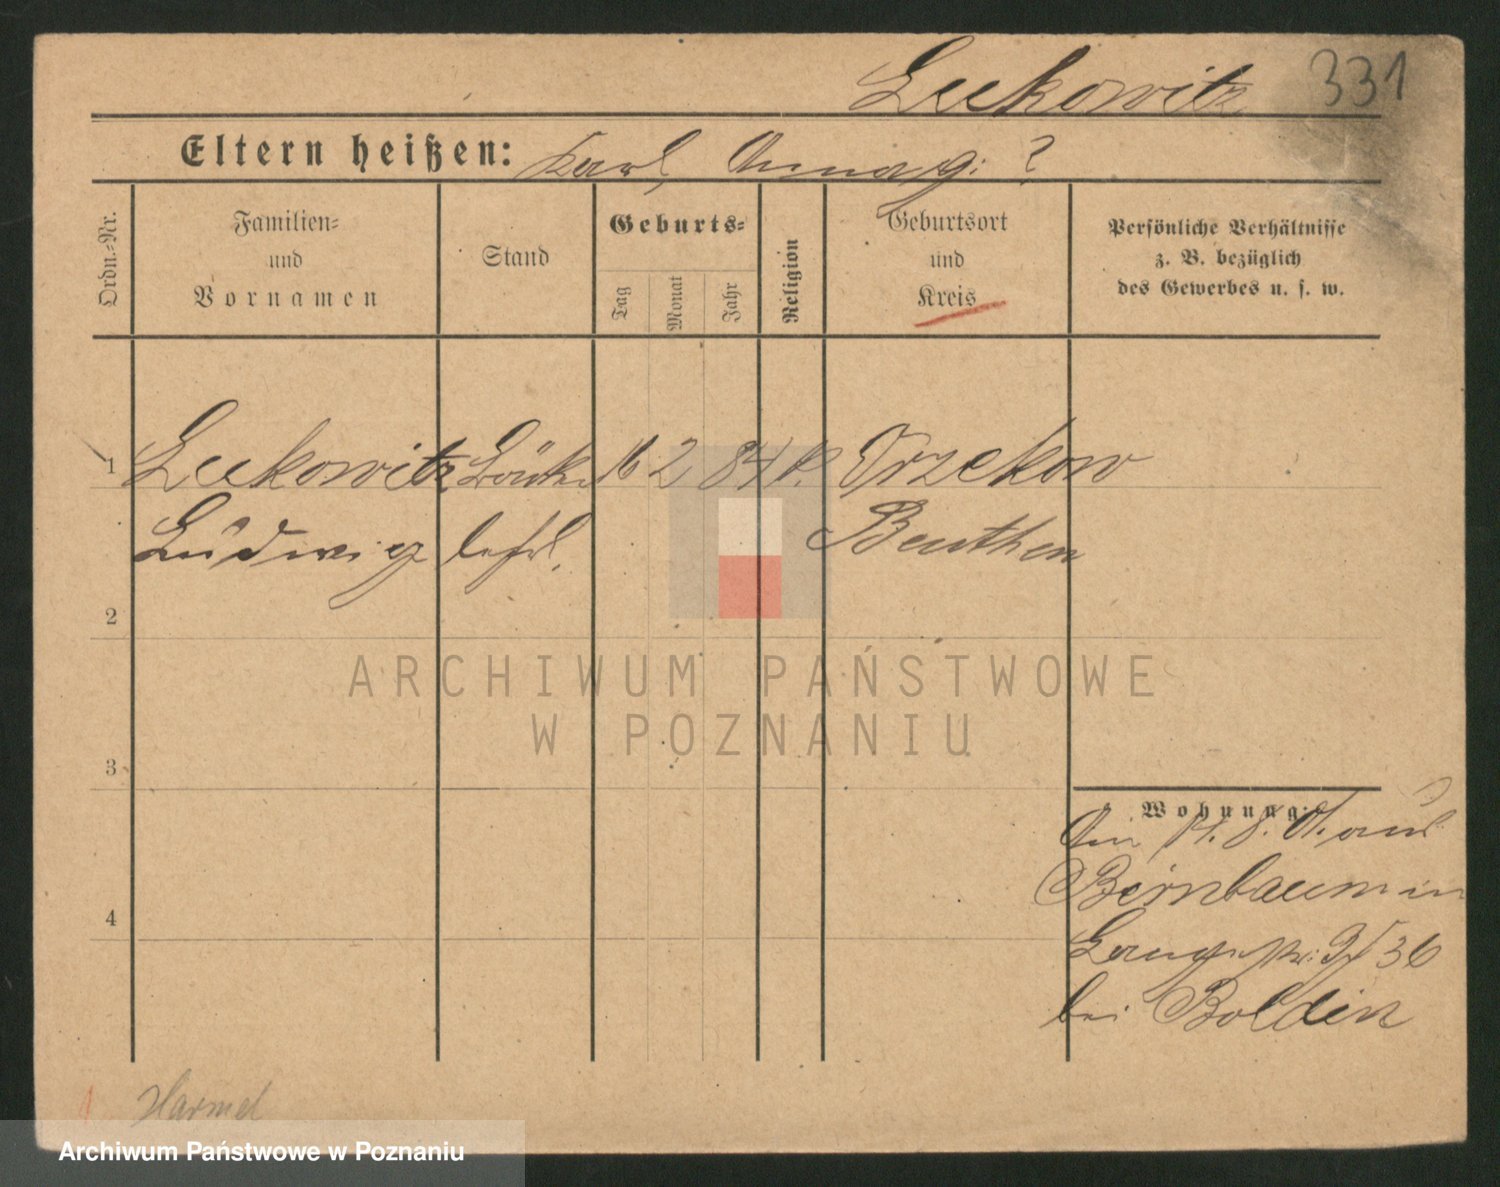 Leckowitz 331
Eltern heißen: Karl, Anna g: ?
Ordn.-Nr.
Familien-
und
Vornamen
Stand
Geburts-
Tag
Monat
Jahr
Religion
Geburtsort
und
Kreis
Persönliche Verhältnisse
z. B. bezüglich
des Gewerbes u. s. w.
1 Leckowitz 16 2 84 k. Orzekow
Ludwig Beuthen
2
3
4
Wohnung:
Am 14. 8. 01. aus
Birnbaum in
36
bei Boldin
Harmel
ARCHIWUM PAŃSTWOWE
W POZNANIU
Archiwum Państwowe w Poznaniu